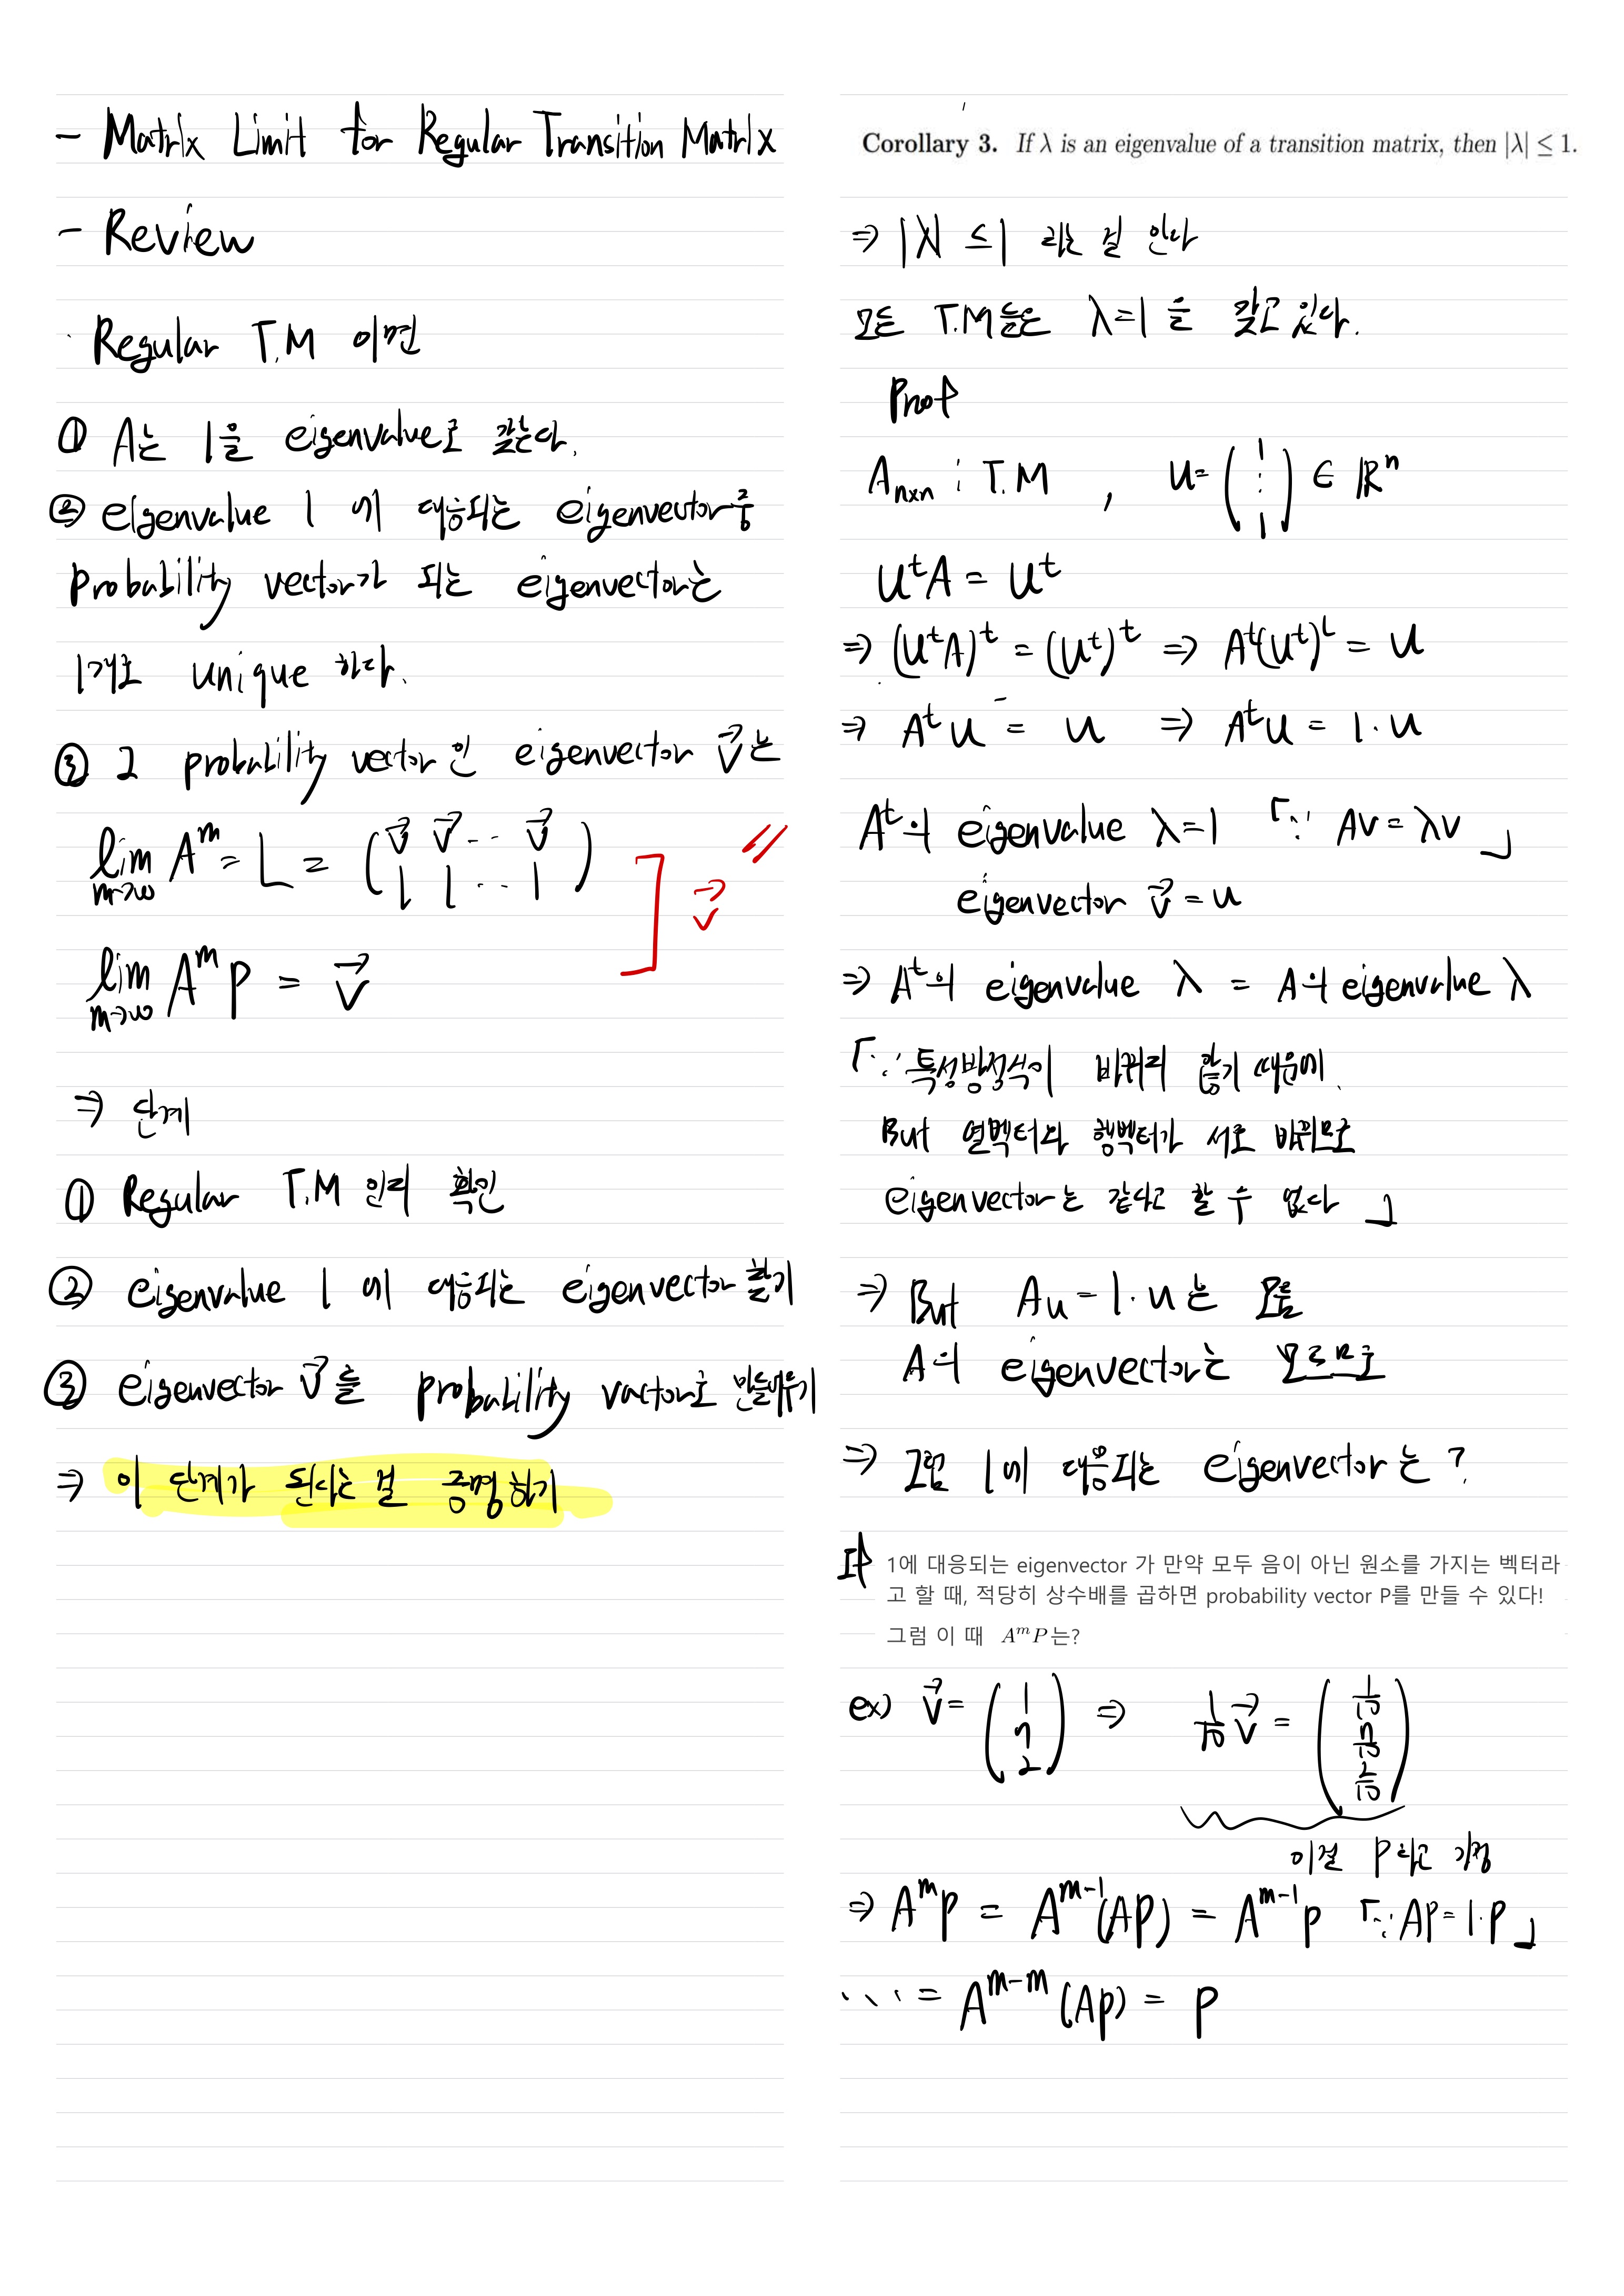 - Matrix Limit for Regular Transition Matrix
- Review
· Regular T.M 이면
① A는 1을 eigenvalue로 갖는다.
② eigenvalue 1 에 대응되는 eigenvector중
probability vector가 되는 eigenvector는
1개로 unique 하다.
③ 그 probability vector인 eigenvector v⃗는
lim m→∞ Aᵐ = L = (v⃗ v⃗ ... v⃗)
lim m→∞ Aᵐp = v⃗
] v⃗ //
⇒ 단계
① Regular T.M 인지 확인
② eigenvalue 1 에 대응되는 eigenvector 찾기
③ eigenvector v⃗를 probability vactor로 만들어주기
⇒ 이 단계가 된다는 걸 증명하기
Corollary 3. If λ is an eigenvalue of a transition matrix, then |λ| ≤ 1.
⇒ |λ| ≤ 1 라는 걸 안다
모든 T.M들은 λ=1 을 갖고 있다.
Proof
Aₙₓₙ : T.M , u = (1 ⋮ 1) ∈ ℝⁿ
uᵗA = uᵗ
⇒ (uᵗA)ᵗ = (uᵗ)ᵗ ⇒ Aᵗ(uᵗ)ᵗ = u
⇒ Aᵗu = u ⇒ Aᵗu = 1·u
Aᵗ의 eigenvalue λ=1 「∵ Av = λv 」
eigenvector v⃗ = u
⇒ Aᵗ의 eigenvalue λ = A의 eigenvalue λ
「∵ 특성방정식이 바뀌지 않기 때문에.
But 열벡터와 행벡터가 서로 바뀌므로
eigenvector는 같다고 할 수 없다 」
⇒ But Au = 1·u는 모름
A의 eigenvector는 모르므로
⇒ 그럼 1에 대응되는 eigenvector는 ?
If 1에 대응되는 eigenvector 가 만약 모두 음이 아닌 원소를 가지는 벡터라
고 할 때, 적당히 상수배를 곱하면 probability vector P를 만들 수 있다!
그럼 이 때 AᵐP는?
ex) v⃗ = (1 7 2) ⇒ 1/10 v⃗ = (1/10 7/10 2/10)
이걸 P라고 가정
⇒ Aᵐp = Aᵐ⁻¹(Ap) = Aᵐ⁻¹p 「∵ Ap = 1·p 」
... = Aᵐ⁻ᵐ(Ap) = p